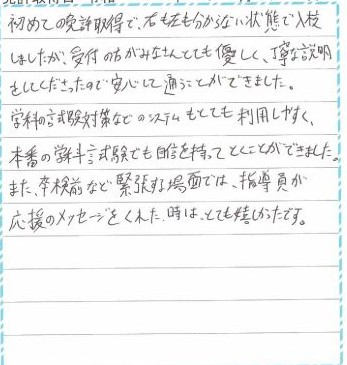 初めての免許取得で、右も左も分からない状態で入校
しましたが、受付の方がみなさんとても優しく、丁寧な説明
をしてくださったので安心して通うことができました。
学科の試験対策などのシステムもとても利用しやすく、
本番の学科試験でも自信を持ってとくことができました。
また、卒検前など緊張する場面では、指導員が
応援のメッセージをくれた時は、とても嬉しかったです。